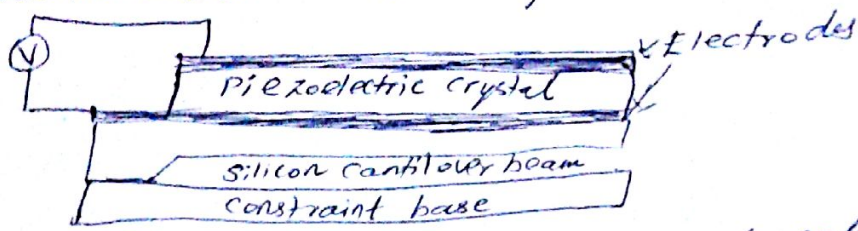 V
Electrodes
Piezoelectric Crystal
silicon cantilover beam
constraint base